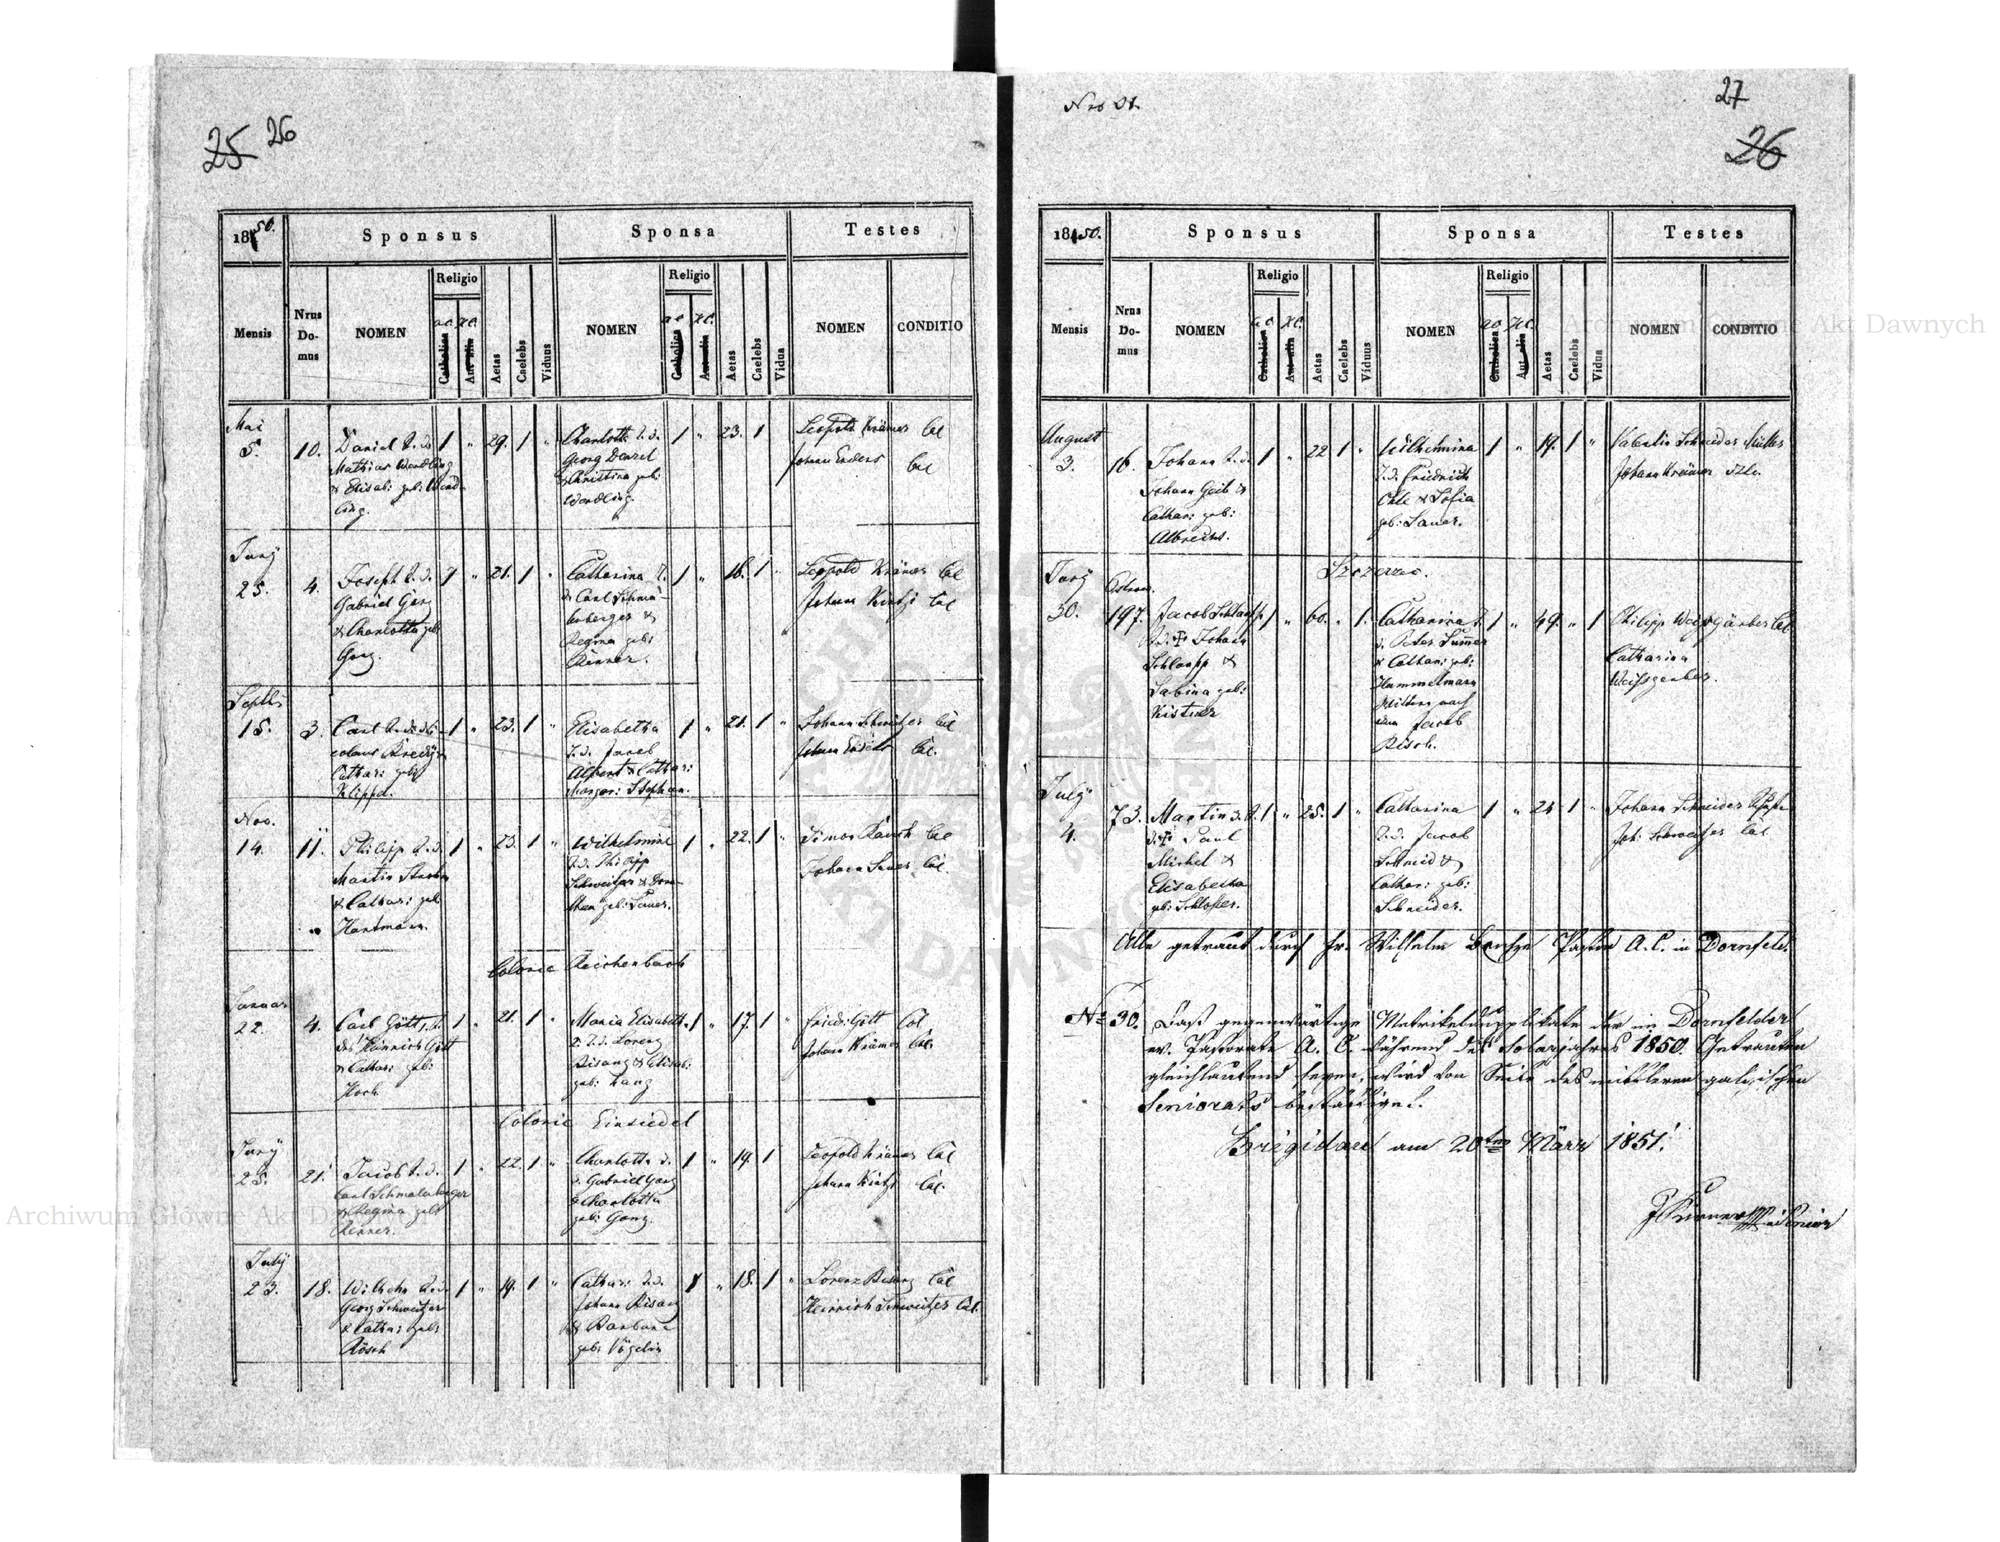 25 26
1850.
Sponsus
Sponsa
Testes
Mensis
Nrus Domus
NOMEN
Religio
a c. H.C.
Catholica
Aut alia
Aetas
Caelebs
Viduus
NOMEN
Religio
a c H.C.
Catholica
Aut alia
Aetas
Caelebs
Vidua
NOMEN
CONDITIO
Mai
5. 10. Daniel S. d. 1 " 29. 1 " Charlotta T. d. 1 " 23. 1 Leopold Krämer Col
Mathias Wendling Georg Denzel Johann Enders Col
& Elisab: geb: Wend- & Christina geb:
ling. Wendling.
Juny
25. 4. Joseph S. d. 1 " 21. 1 " Catharina T. 1 " 18. 1 " Leopold Krämer Col
Gabriel Ganz d. Carl Schma- Johann Kintzi Col
& Charlotta geb: lenberger &
Ganz. Regina geb:
Renner.
Septb:
15. 3. Carl S. d. Ni- 1 " 23. 1 " Elisabetha 1 " 21. 1 " Johann Schweitzer Col
colaus Bredy & T. d. Jacob Johann Enders Col.
Cathar: geb: Albert & Cathar:
Klippel. Margar: Stephan.
Nov.
14. 11. Philipp S. d. 1 " 23. 1 " Wilhelmine 1 " 22. 1 " Simon Rauch Col
Martin T. d. Philipp Johann Sauer Col.
& Cathar: geb: Schweitzer & Doro-
Hartmann. thea geb: Sauer.
Colonie Reichenbach
Januar
22. 4. Carl Gött, S. 1 " 21. 1 " Maria Elisabeth 1 " 17. 1 " Fried: Gött Col
des Heinrich Gött T. d. Lorenz Johann Krämer Col.
& Cathar: geb: Bisanz & Elisab:
Koch. geb: Lang
Colonie Einsiedel
Juny
25. 21. Jacob S. d. 1 " 22. 1 " Charlotta T. 1 " 19. 1 Leopold Krämer Col
Carl Schmalenberger d. Gabriel Ganz Johann Kintzi Col.
& Regina geb: & Charlotta
Renner. geb: Ganz.
July
23. 18. Wilhelm S. d. 1 " 19. 1 " Cathar: T. d. 1 " 18. 1 " Lorenz Bisanz Col
Georg Schweitzer Johann Bisanz Heinrich Schweitzer Col.
& Cathar: geb: & Barbara
Rösch geb: Vögelin
Nro 21.
27
26
1850.
Sponsus
Sponsa
Testes
Mensis
Nrus Domus
NOMEN
Religio
a c. H.C.
Catholica
Aut alia
Aetas
Caelebs
Viduus
NOMEN
Religio
a c H.C.
Catholica
Aut alia
Aetas
Caelebs
Vidua
NOMEN
CONDITIO
August
3. 16. Johann S. d. 1 " 22 1 " Wilhelmina 1 " 19. 1 " Valentin Schneider Müller
Johann Geib & T. d. Friedrich Johann Krämer
Cathar: geb: Ohle & Sofia
Albrecht. geb: Sauer.
Szczerzec.
Juny
30. 197. Jacob Schlapp 1 " 60. " 1. Catharina T. 1 " 49. " 1 Philipp Weisgärber Col.
S. d. Johann d. Peter Catharina
Schlapp & & Cathar: geb: Weisgerber.
Sabina geb: Hummelmann
Kistner Wittwe nach
dem Jacob
Bisch.
July
4. 73. Martin S. 1 " 25. 1 " Catharina 1 " 24 1 " Johann Schneider
d. Paul T. d. Jacob Joh: Schweitzer Col.
Michel & Schmid &
Elisabetha Cathar: geb:
geb: Schlosser. Schneider.
Alle getraut durch Hr. Wilhelm Pastor A. C. in Dornfeld.
No 30. Daß gegenwärtige Metrikelduplikate der im Dornfelder
ev. Pastorate A. C. während des Solarjahres 1850. Getrauten
gleichlautend seyen, wird von Seite des mittleren galizischen
Seniorats bestätiget.
Brigidau am 20ten März 1851.
Senior
Archiwum Główne Akt Dawnych
Archiwum Główne Akt Dawnych
ARCHIWUM GŁÓWNE AKT DAWNYCH